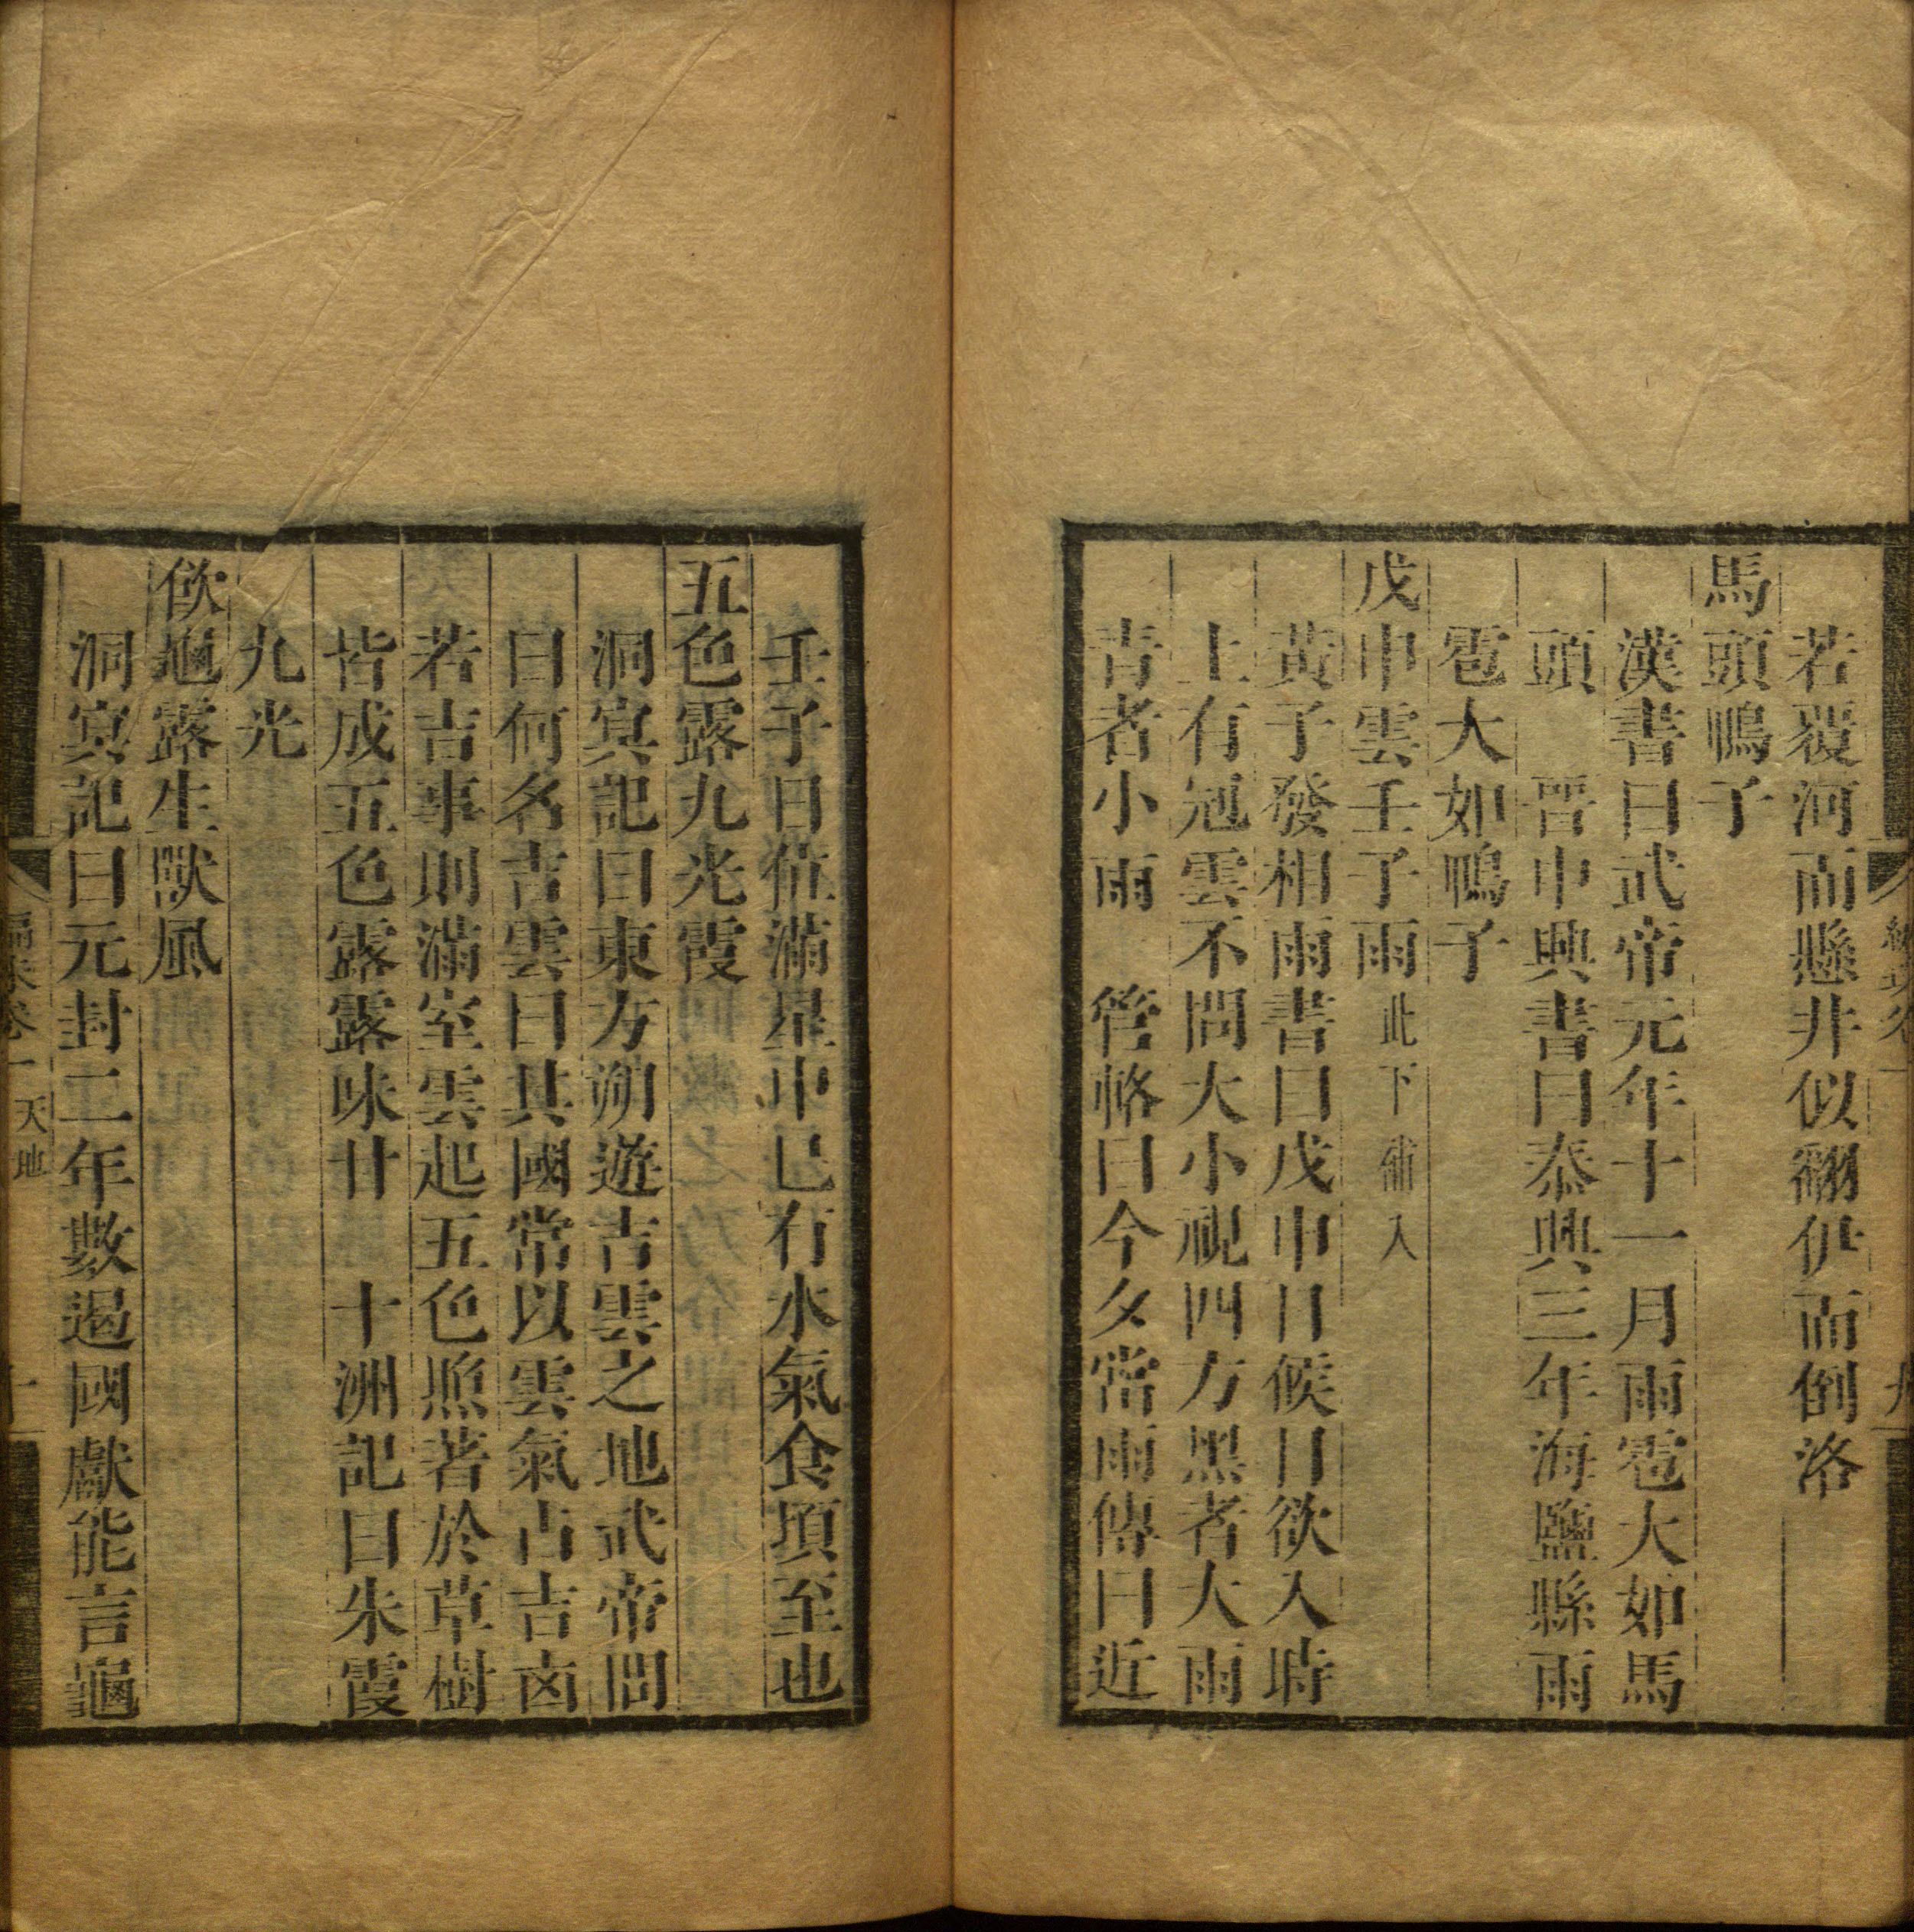 若覆河而懸井似翻伊而倒洛
馬頭鴨子
漢書曰武帝元年十一月雨雹大如馬
頭　晉中興書曰泰興三年海鹽縣雨
雹大如鴨子
戊申雲壬子雨此下術入
黃子發相雨書曰戊申日候日欲入時
上有冠雲不問大小視四方黑者大雨
青者小雨　管輅曰今夕當雨傳曰近
壬子日值滿星中已有水氣食頃至也
五色露九光霞
洞冥記曰東方朔遊吉雲之地武帝問
曰何名吉雲曰其國常以雲氣占吉凶
若吉事則滿室雲起五色照著於草樹
皆成五色露露味甘　十洲記曰朱霞
九光
飲龜露生獸風
洞冥記曰元封二年數過國獻能言龜
編珠卷一　天地　十